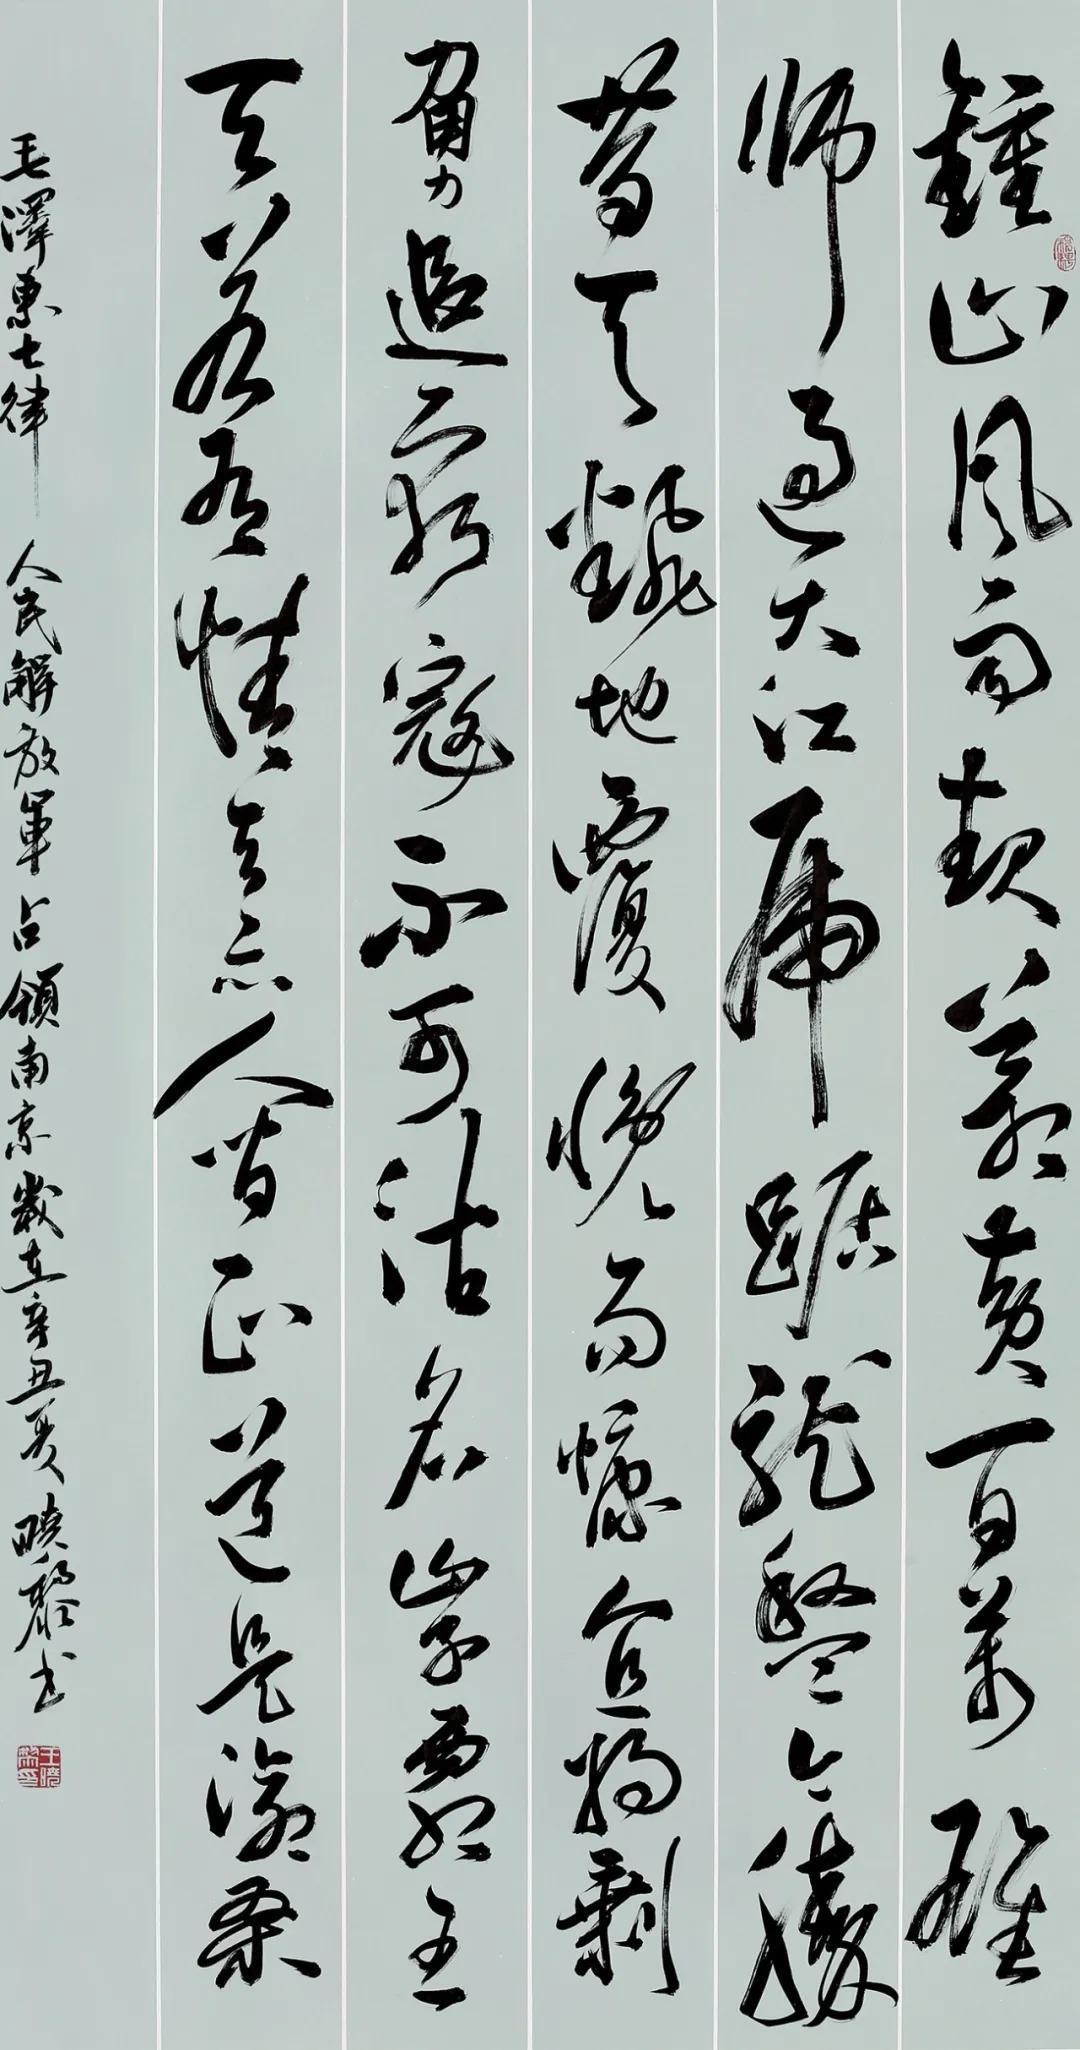 鍾山風雨起蒼黃百萬雄
師過大江虎踞龍盤今勝
昔天飜地覆慨而慷宜將剩
勇追窮寇不可沽名學霸王
天若有情天亦人間正道是滄桑
毛澤東七律 人民解放軍占領南京 歲在辛丑夏 曉黎書